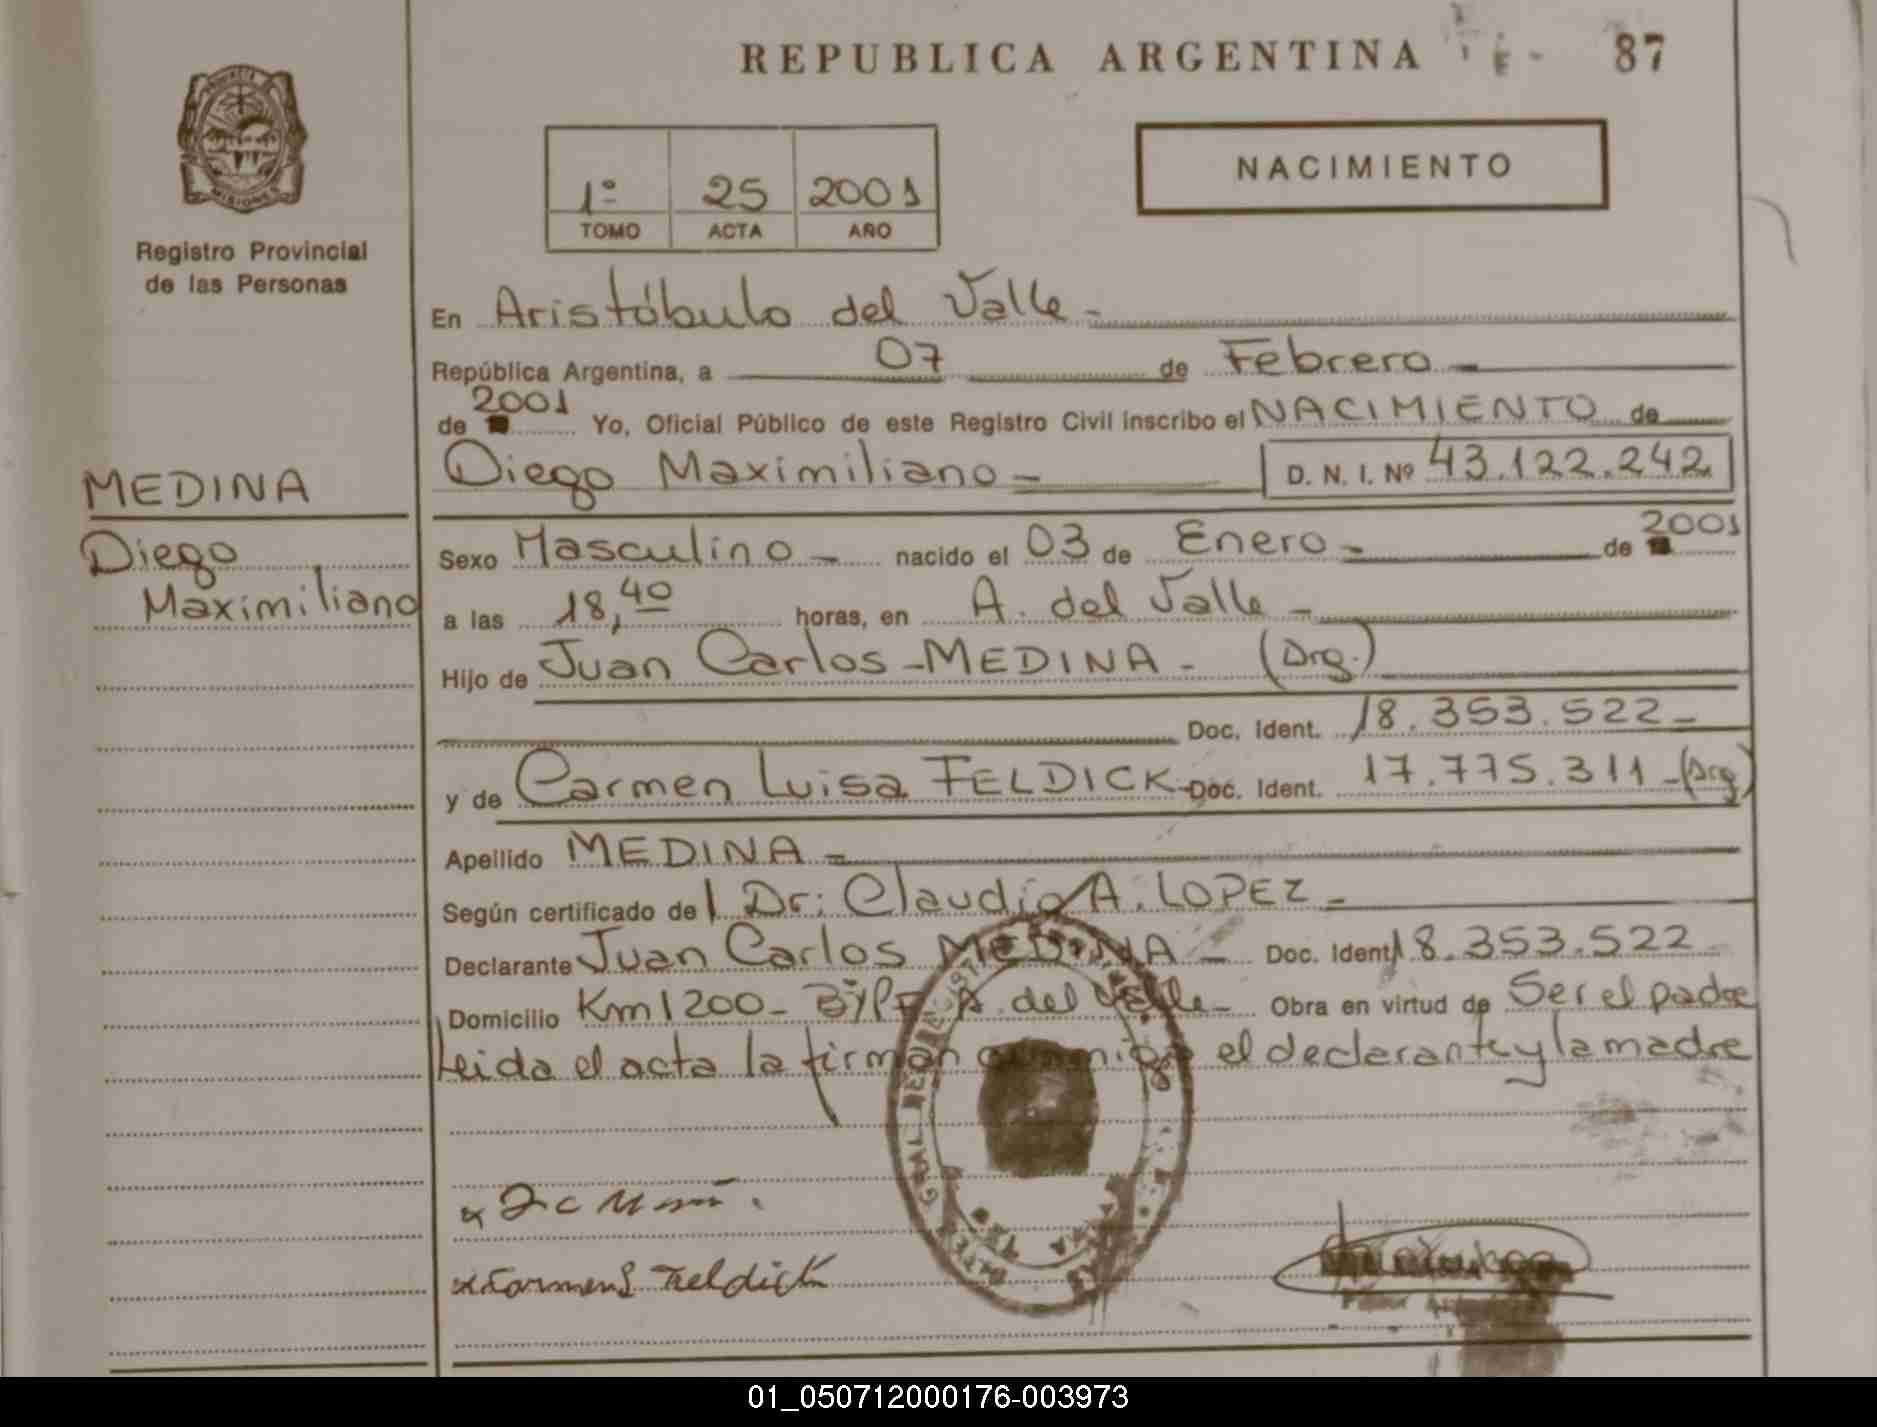 REPUBLICA ARGENTINA 87
PROVINCIA
MISIONES
Registro Provincial
de las Personas
1º 25 2001
TOMO ACTA AÑO
NACIMIENTO
En Aristóbulo del Valle -
República Argentina, a 07 de Febrero -
de 2001 Yo, Oficial Público de este Registro Civil inscribo el NACIMIENTO de
Diego Maximiliano - D. N. I. Nº 43.122.242
MEDINA
Diego
Maximiliano
Sexo Masculino - nacido el 03 de Enero - de 2001
a las 18,40 horas, en A. del Valle -
Hijo de Juan Carlos - MEDINA - (Arg.)
Doc. Ident. 18.353.522 -
y de Carmen Luisa FELDICK - Doc. Ident. 17.775.311 - (Arg)
Apellido MEDINA -
Según certificado del Dr: Claudio A. LOPEZ -
Declarante Juan Carlos MEDINA - Doc. Ident. 18.353.522
Domicilio Km 1200 - A. del Valle - Obra en virtud de Ser el padre
Leida el acta la firman conmigo el declarante y la madre
x
x Carmen L Feldick
01_050712000176-003973